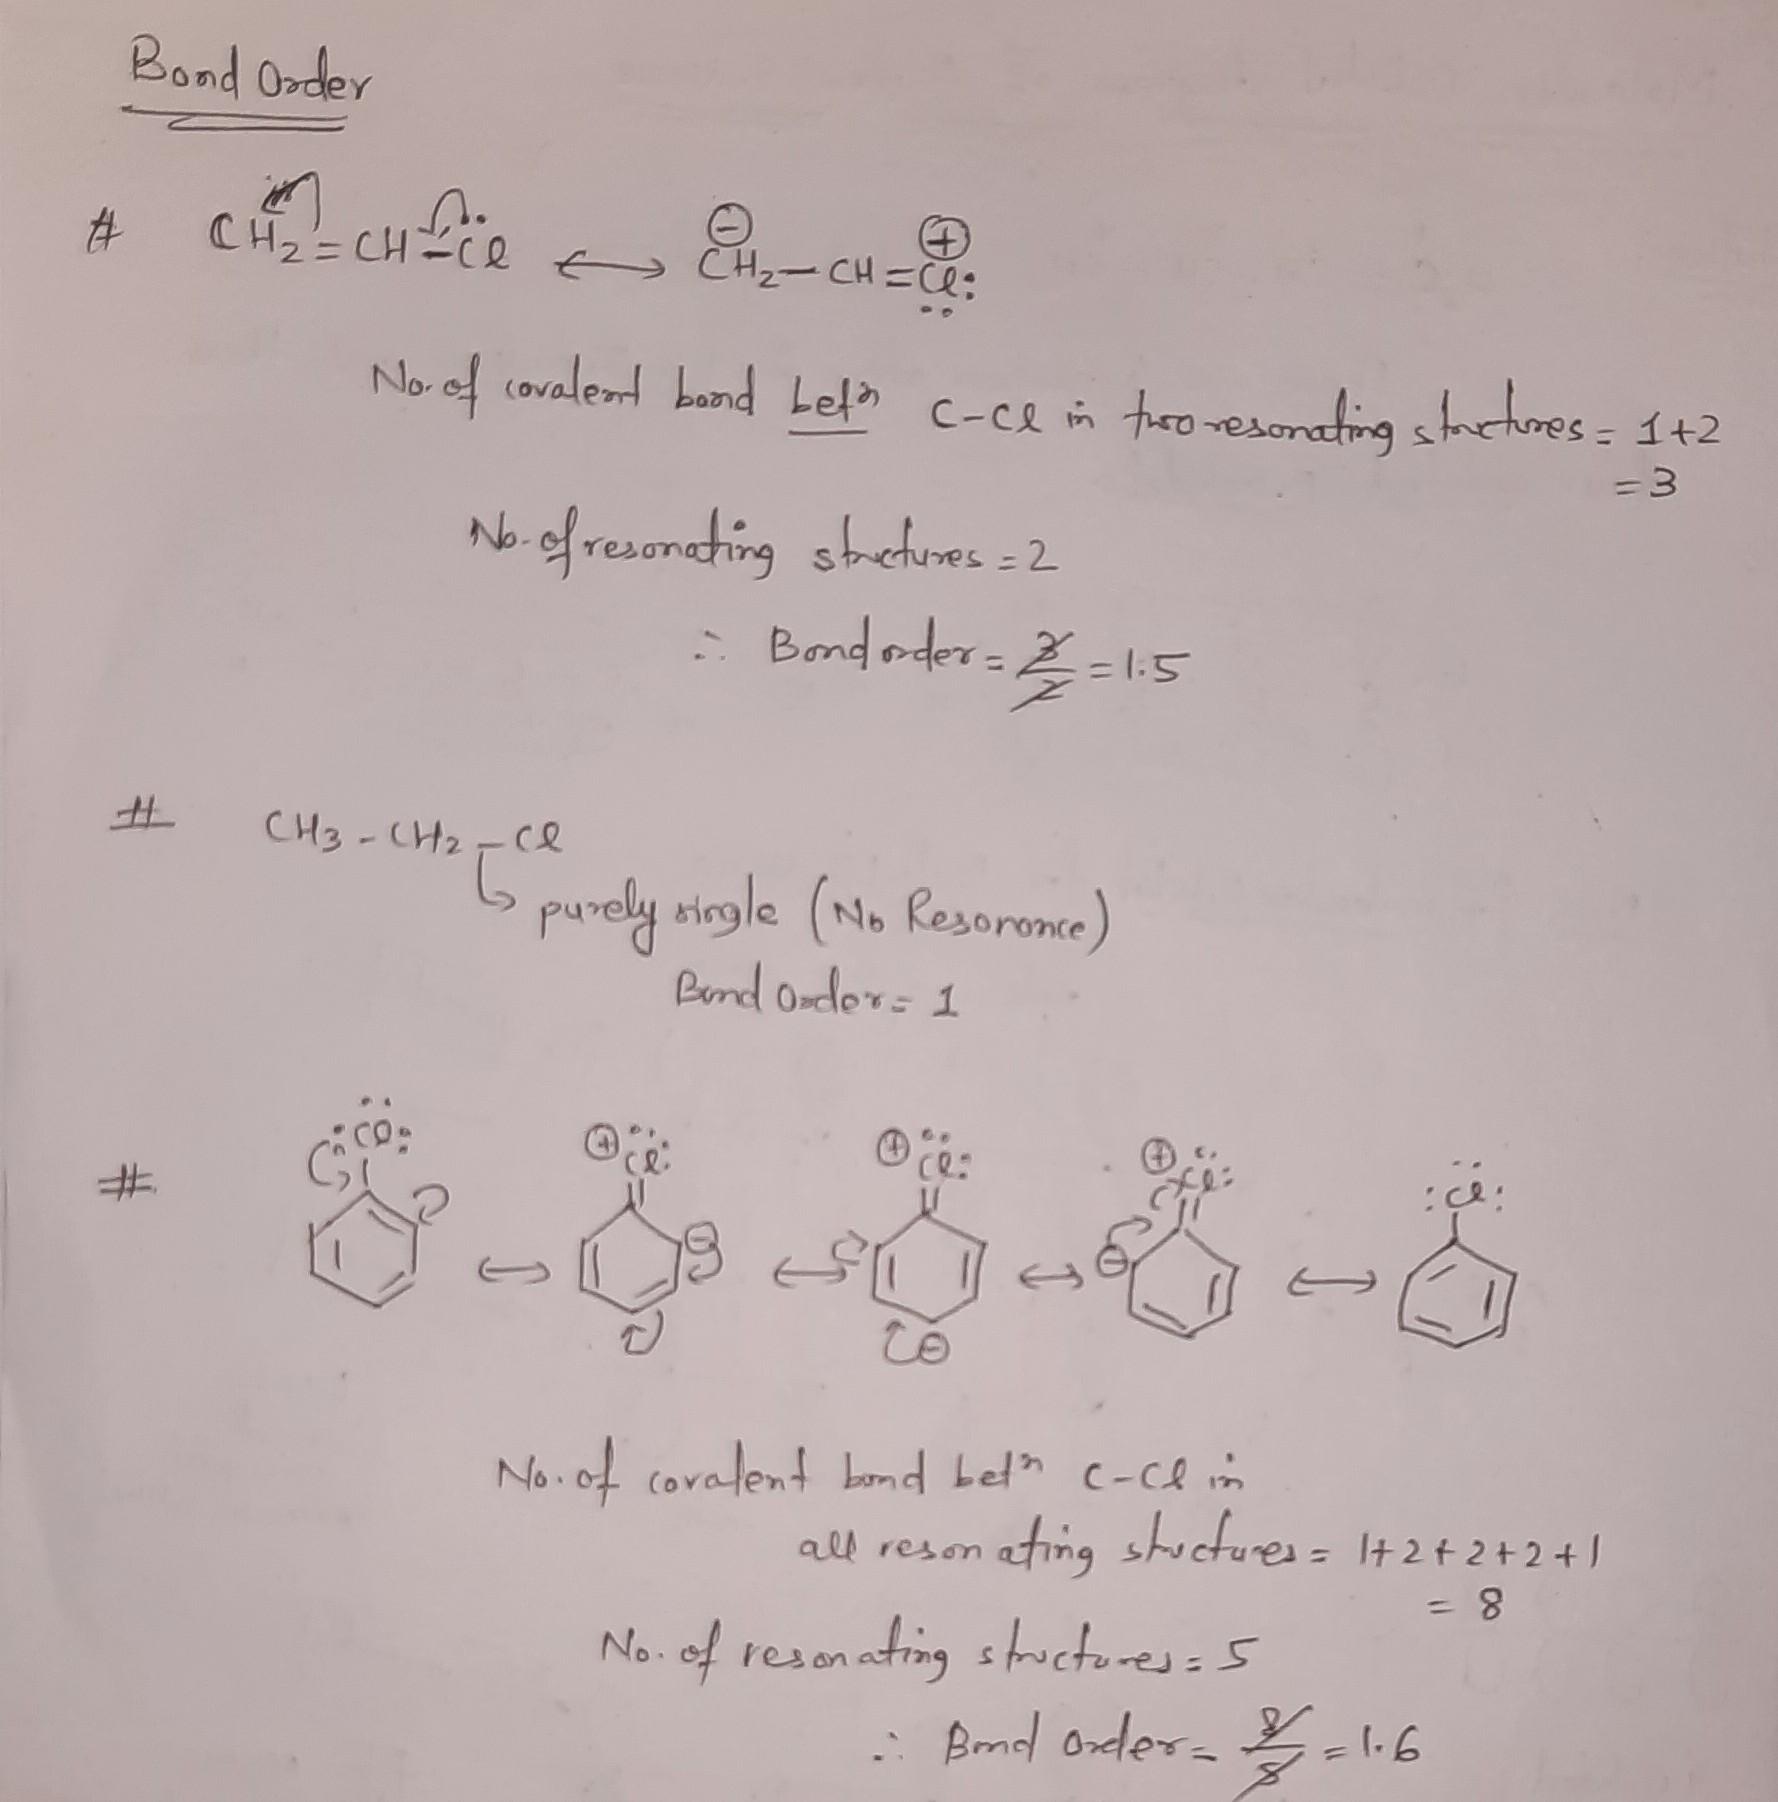 Bond Order
# CH₂=CH-Cl ⟷ CH₂-CH=Cl:
⊖ ⊕
No. of covalent bond betn C-Cl in two resonating structures = 1+2
= 3
No. of resonating structures = 2
∴ Bond order = 3/2 = 1.5
# CH3-CH2-Cl
purely single (No Resonance)
Bond Order = 1
# :Cl: ⟷ ⊕ Cl: ⊖ ⟷ ⊕ Cl: ⊖ ⟷ ⊕ Cl: ⊖ ⟷ :Cl:
No. of covalent bond betn C-Cl in
all resonating structures = 1+2+2+2+1
= 8
No. of resonating structures = 5
∴ Bond Order = 8/5 = 1.6